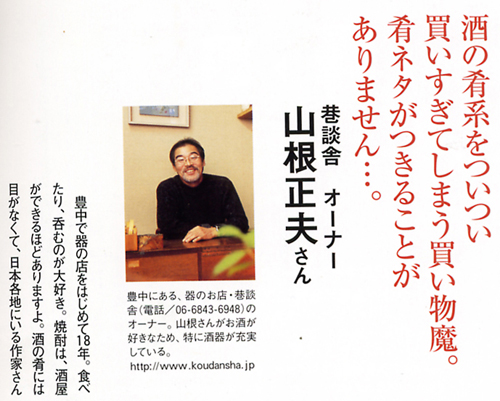 酒の肴系をついつい
買いすぎてしまう買い物魔。
肴ネタがつきることが
ありません…。
巷談舎 オーナー
山根正夫さん
豊中にある、器のお店・巷談
舎(電話／06-6843-6948)の
オーナー。山根さんがお酒が
好きなため、特に酒器が充実
している。
http://www.koudansha.jp
豊中で器の店をはじめて18年。食べ
たり、呑むのが大好き。焼酎は、酒屋
ができるほどありますよ。酒の肴には
目がなくて、日本各地にいる作家さん